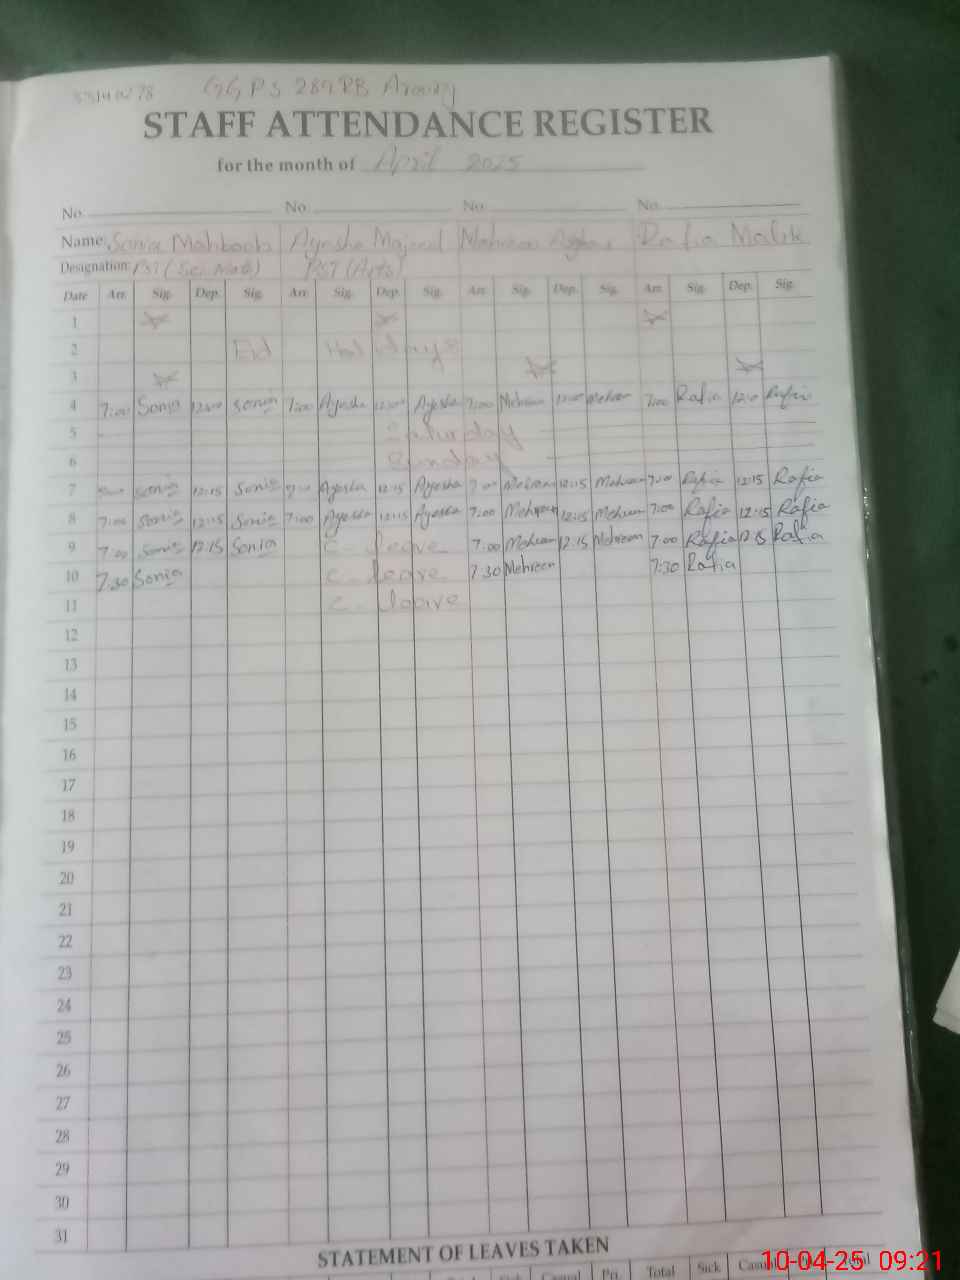 GGPS 289 RB
STAFF ATTENDANCE REGISTER
for the month of April 2025
No. No. No. No.
Name: Sonia Mahboob Ayesha Majeed Mehreen Asghar Rafia Malik
Designation: PST (Sci. Math) PST (Arts)
Date Arr. Sig. Dep. Sig. Arr. Sig. Dep. Sig. Arr. Sig. Dep. Sig. Arr. Sig. Dep. Sig.
1
2 Eid Holidays
3
4 7:00 Sonia 12:00 Sonia 7:00 Ayesha 12:00 Ayesha 7:00 Mehreen 12:00 Mehreen 7:00 Rafia 12:0 Rafia
5 Saturday
6 Sunday
7 Sonia 12:15 Sonia Ayesha 12:15 Ayesha 7:00 Mehreen 12:15 Mehreen 7:00 Rafia 12:15 Rafia
8 7:00 Sonia 12:15 Sonia 7:00 Ayesha 12:15 Ayesha 7:00 Mehreen 12:15 Mehreen 7:00 Rafia 12:15 Rafia
9 7:00 Sonia 12:15 Sonia C-leave 7:00 Mehreen 12:15 Mehreen 7:00 Rafia 12:15 Rafia
10 7:30 Sonia C-leave 7:30 Mehreen 7:30 Rafia
11 C-leave
12
13
14
15
16
17
18
19
20
21
22
23
24
25
26
27
28
29
30
31
STATEMENT OF LEAVES TAKEN
Sick Casual Pri. Total Sick Casual Total
10-04-25 09:21